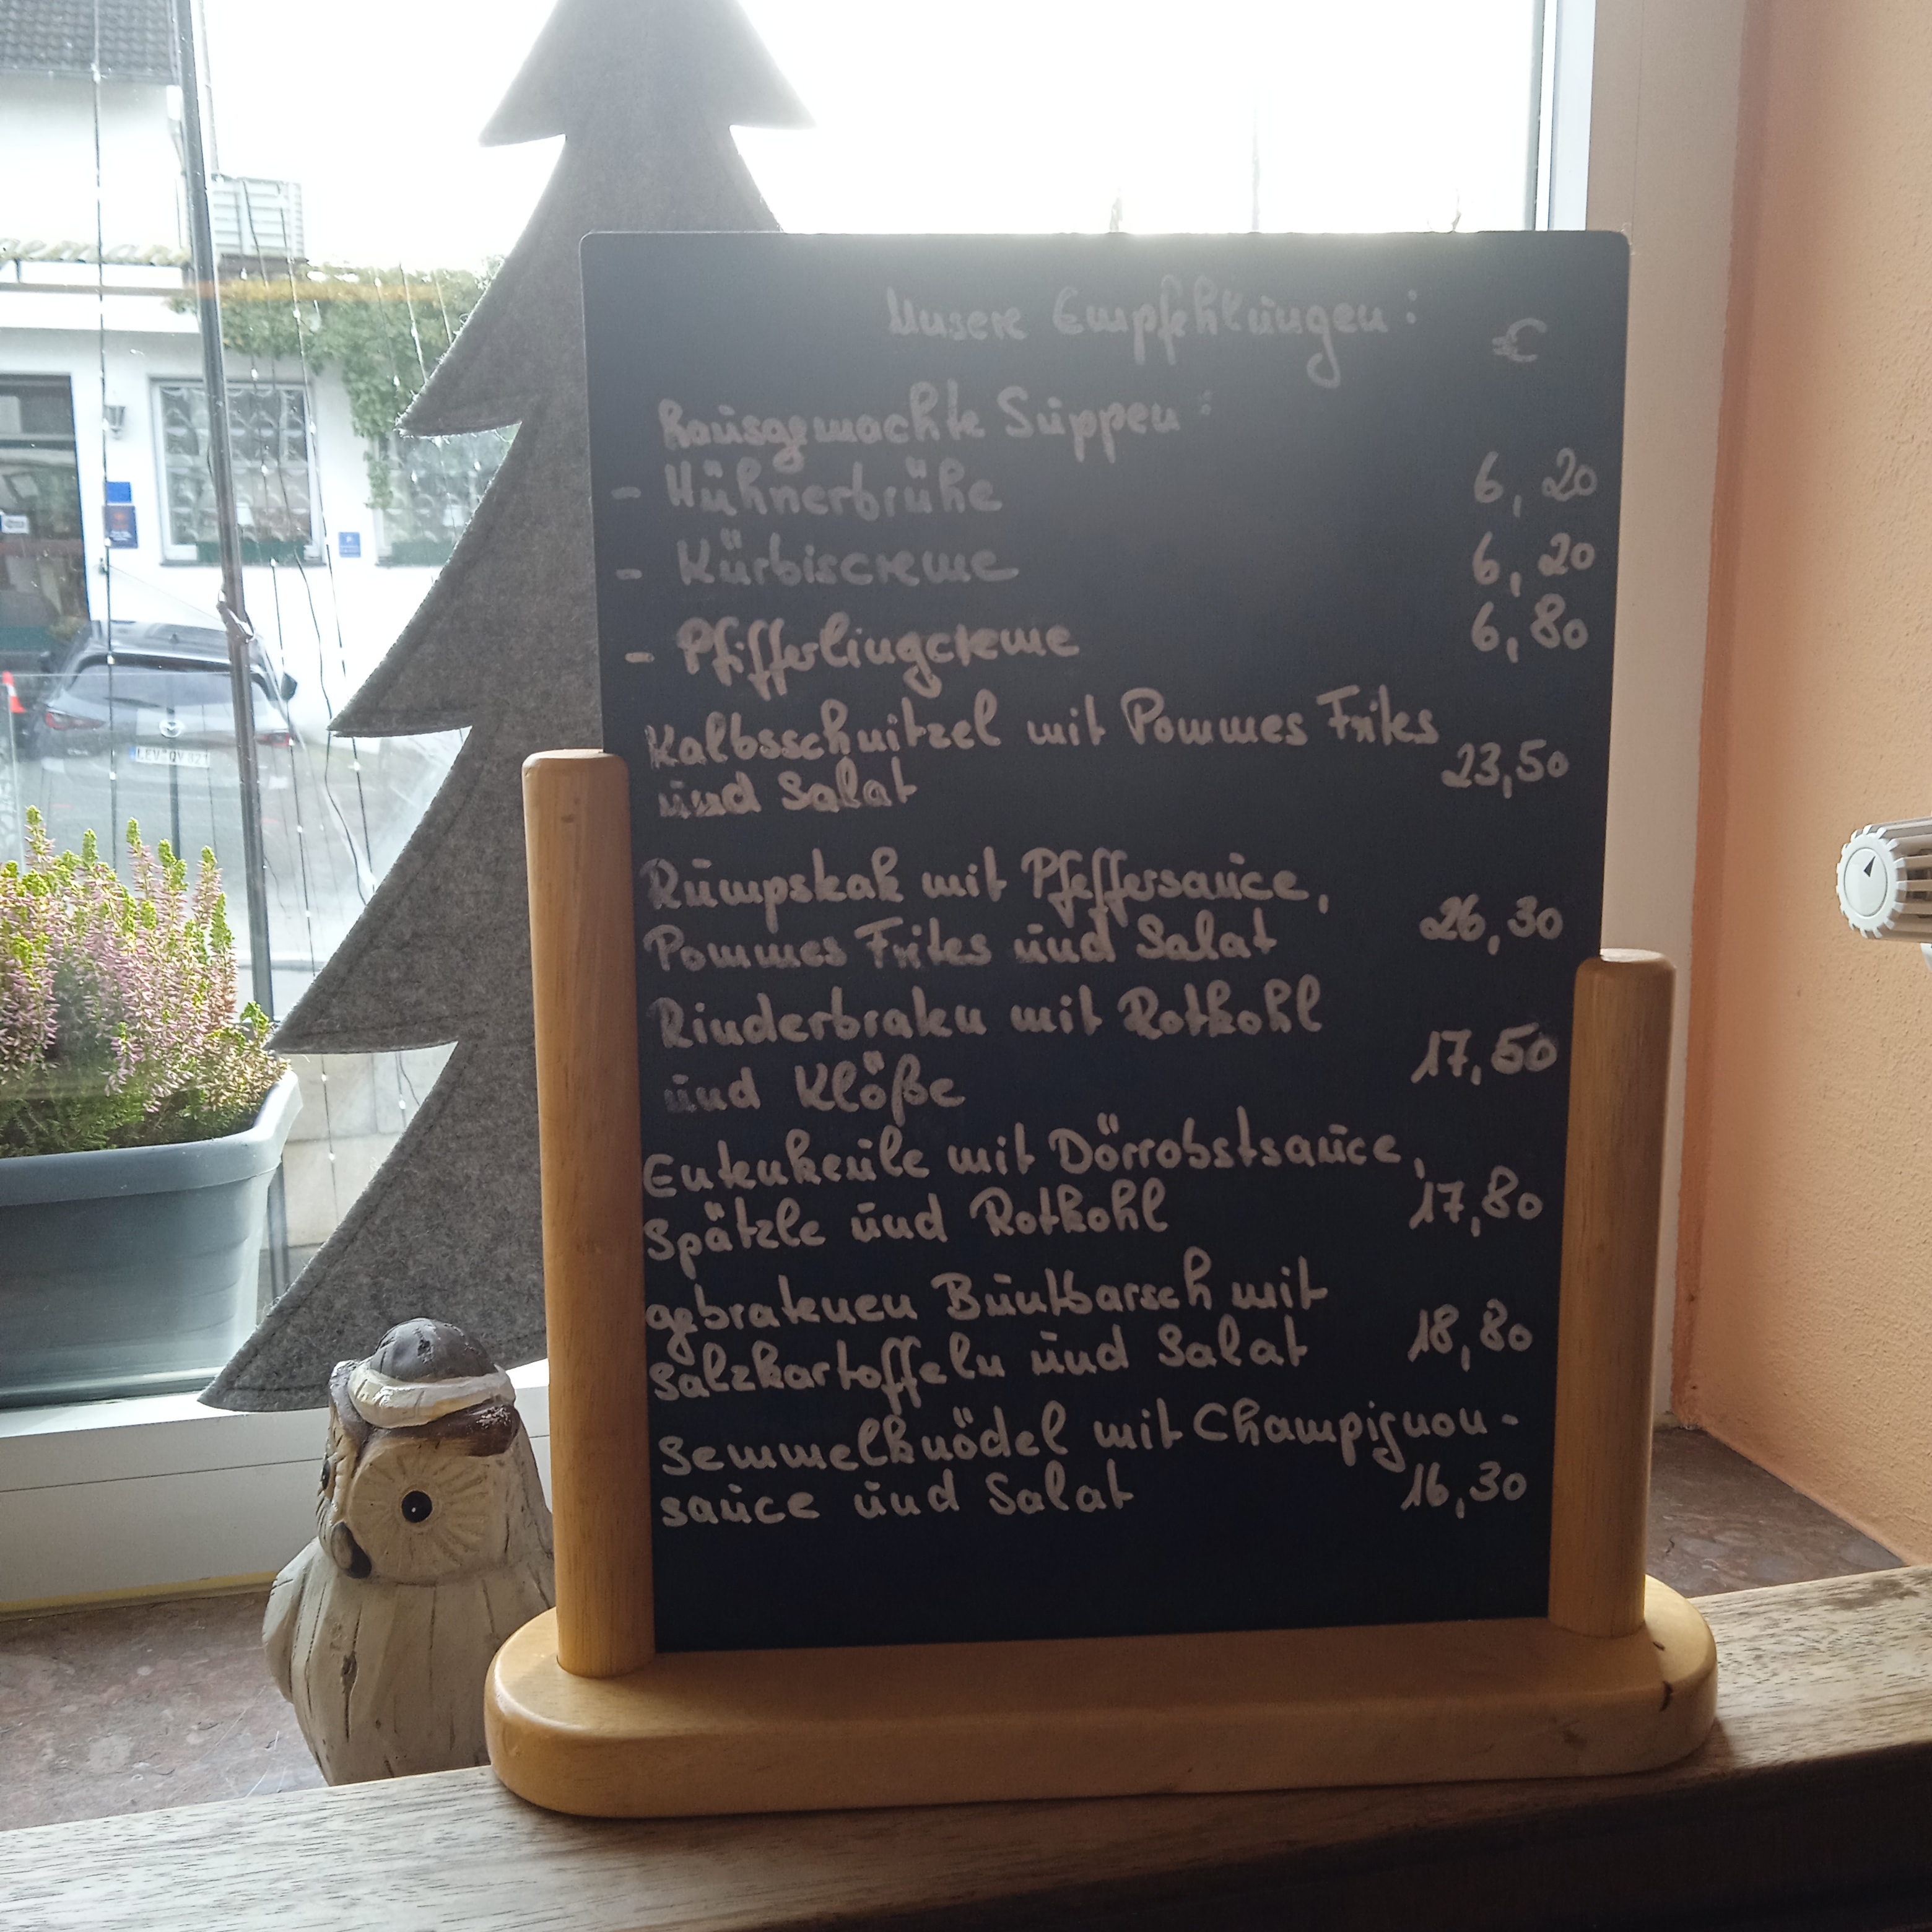 Unsere Empfehlungen:
€
hausgemachte Suppen:
- Hühnerbrühe 6,20
- Kürbiscreme 6,20
- Pfifferlingcreme 6,80
Kalbsschnitzel mit Pommes Frites
und Salat 23,50
Rumpskak mit Pfeffersauce,
Pommes Frites und Salat 26,30
Rinderbraten mit Rotkohl
und Klöße 17,50
Entenkeule mit Dörrobstsauce,
Spätzle und Rotkohl 17,80
gebratenen Buntbarsch mit
Salzkartoffeln und Salat 18,80
Semmelknödel mit Champignon-
sauce und Salat 16,30